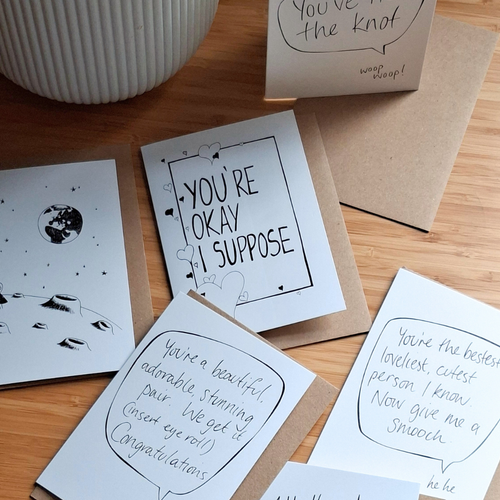 You've
the knot
woop
woop!
YOU'RE
OKAY
I SUPPOSE
You're a beautiful,
adorable, stunning
pair. We get it
(insert eye roll)
Congratulations
You're the bestest
loveliest, cutest
person I know.
Now give me a
Smooch
he he